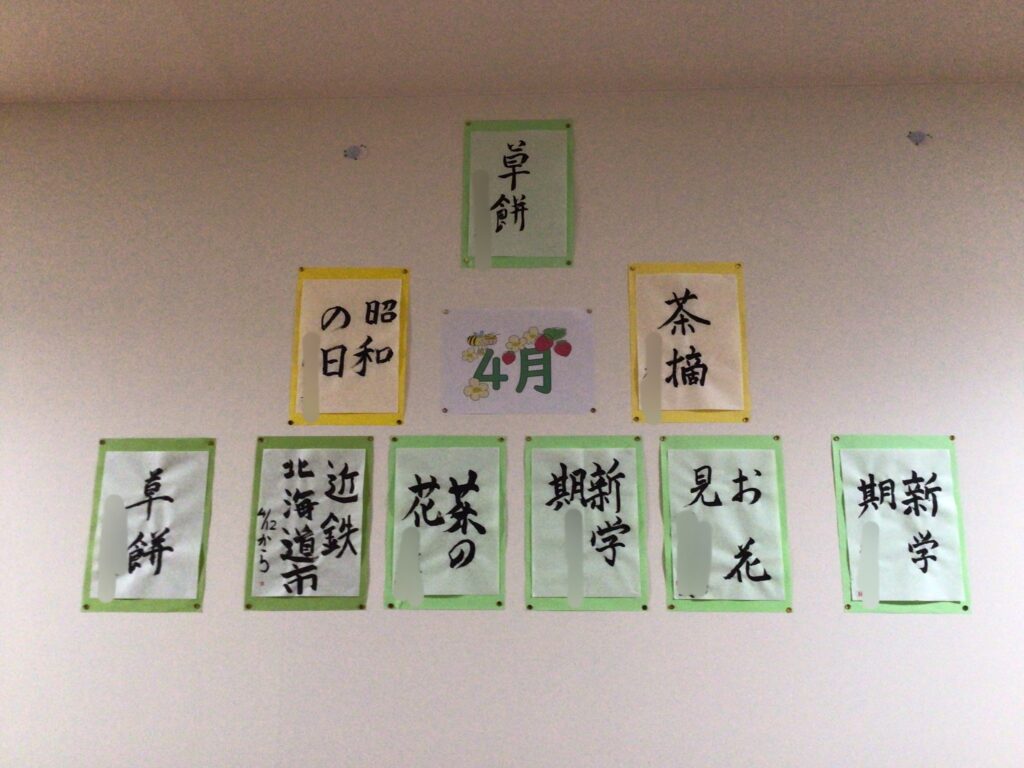 草餅
昭和
の日
4月
茶摘
草餅
近鉄
北海道市
4/12から
菜の
花
新学
期
お花
見
新学
期